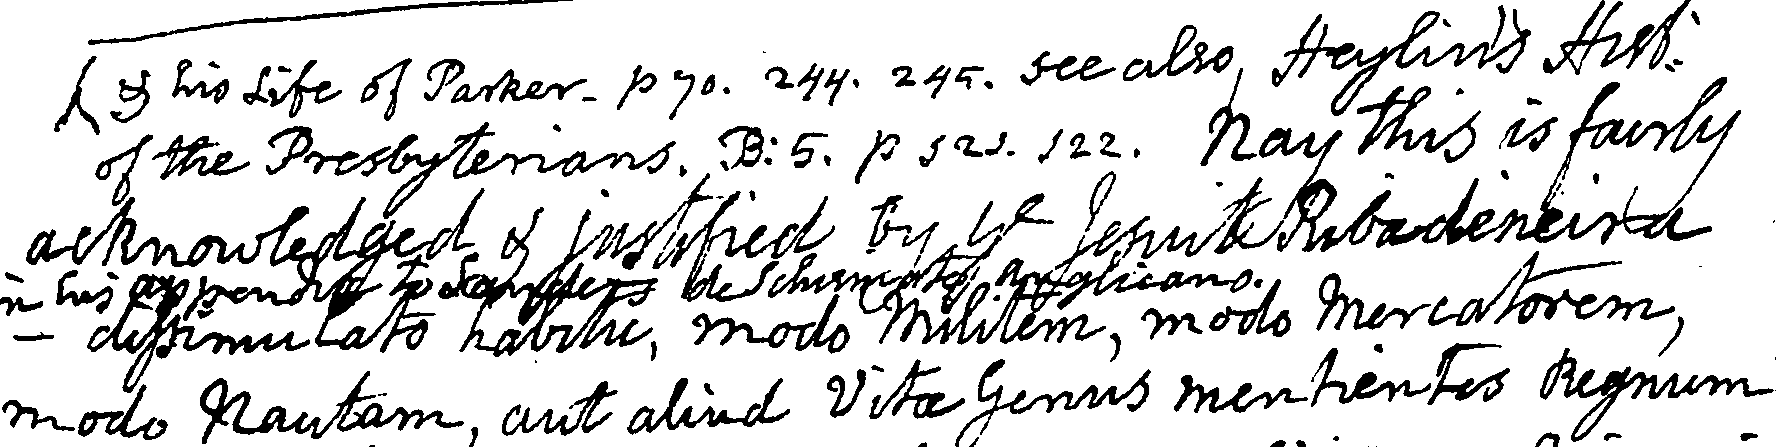 & his Life of Parker - p 70. 244. 245. see also, Heylin's Hist:
of the Presbyterians. B: 5. p 521. 522. Nay this is fairly
acknowledged & justified by ye Jesuite Ribadeneira
in his appendix to Sanders de Schismate Anglicano.
- dissimulato habitu, modo Militem, modo Mercatorem,
modo Nautam, aut aliud Vitæ Genus mentientes Regnum